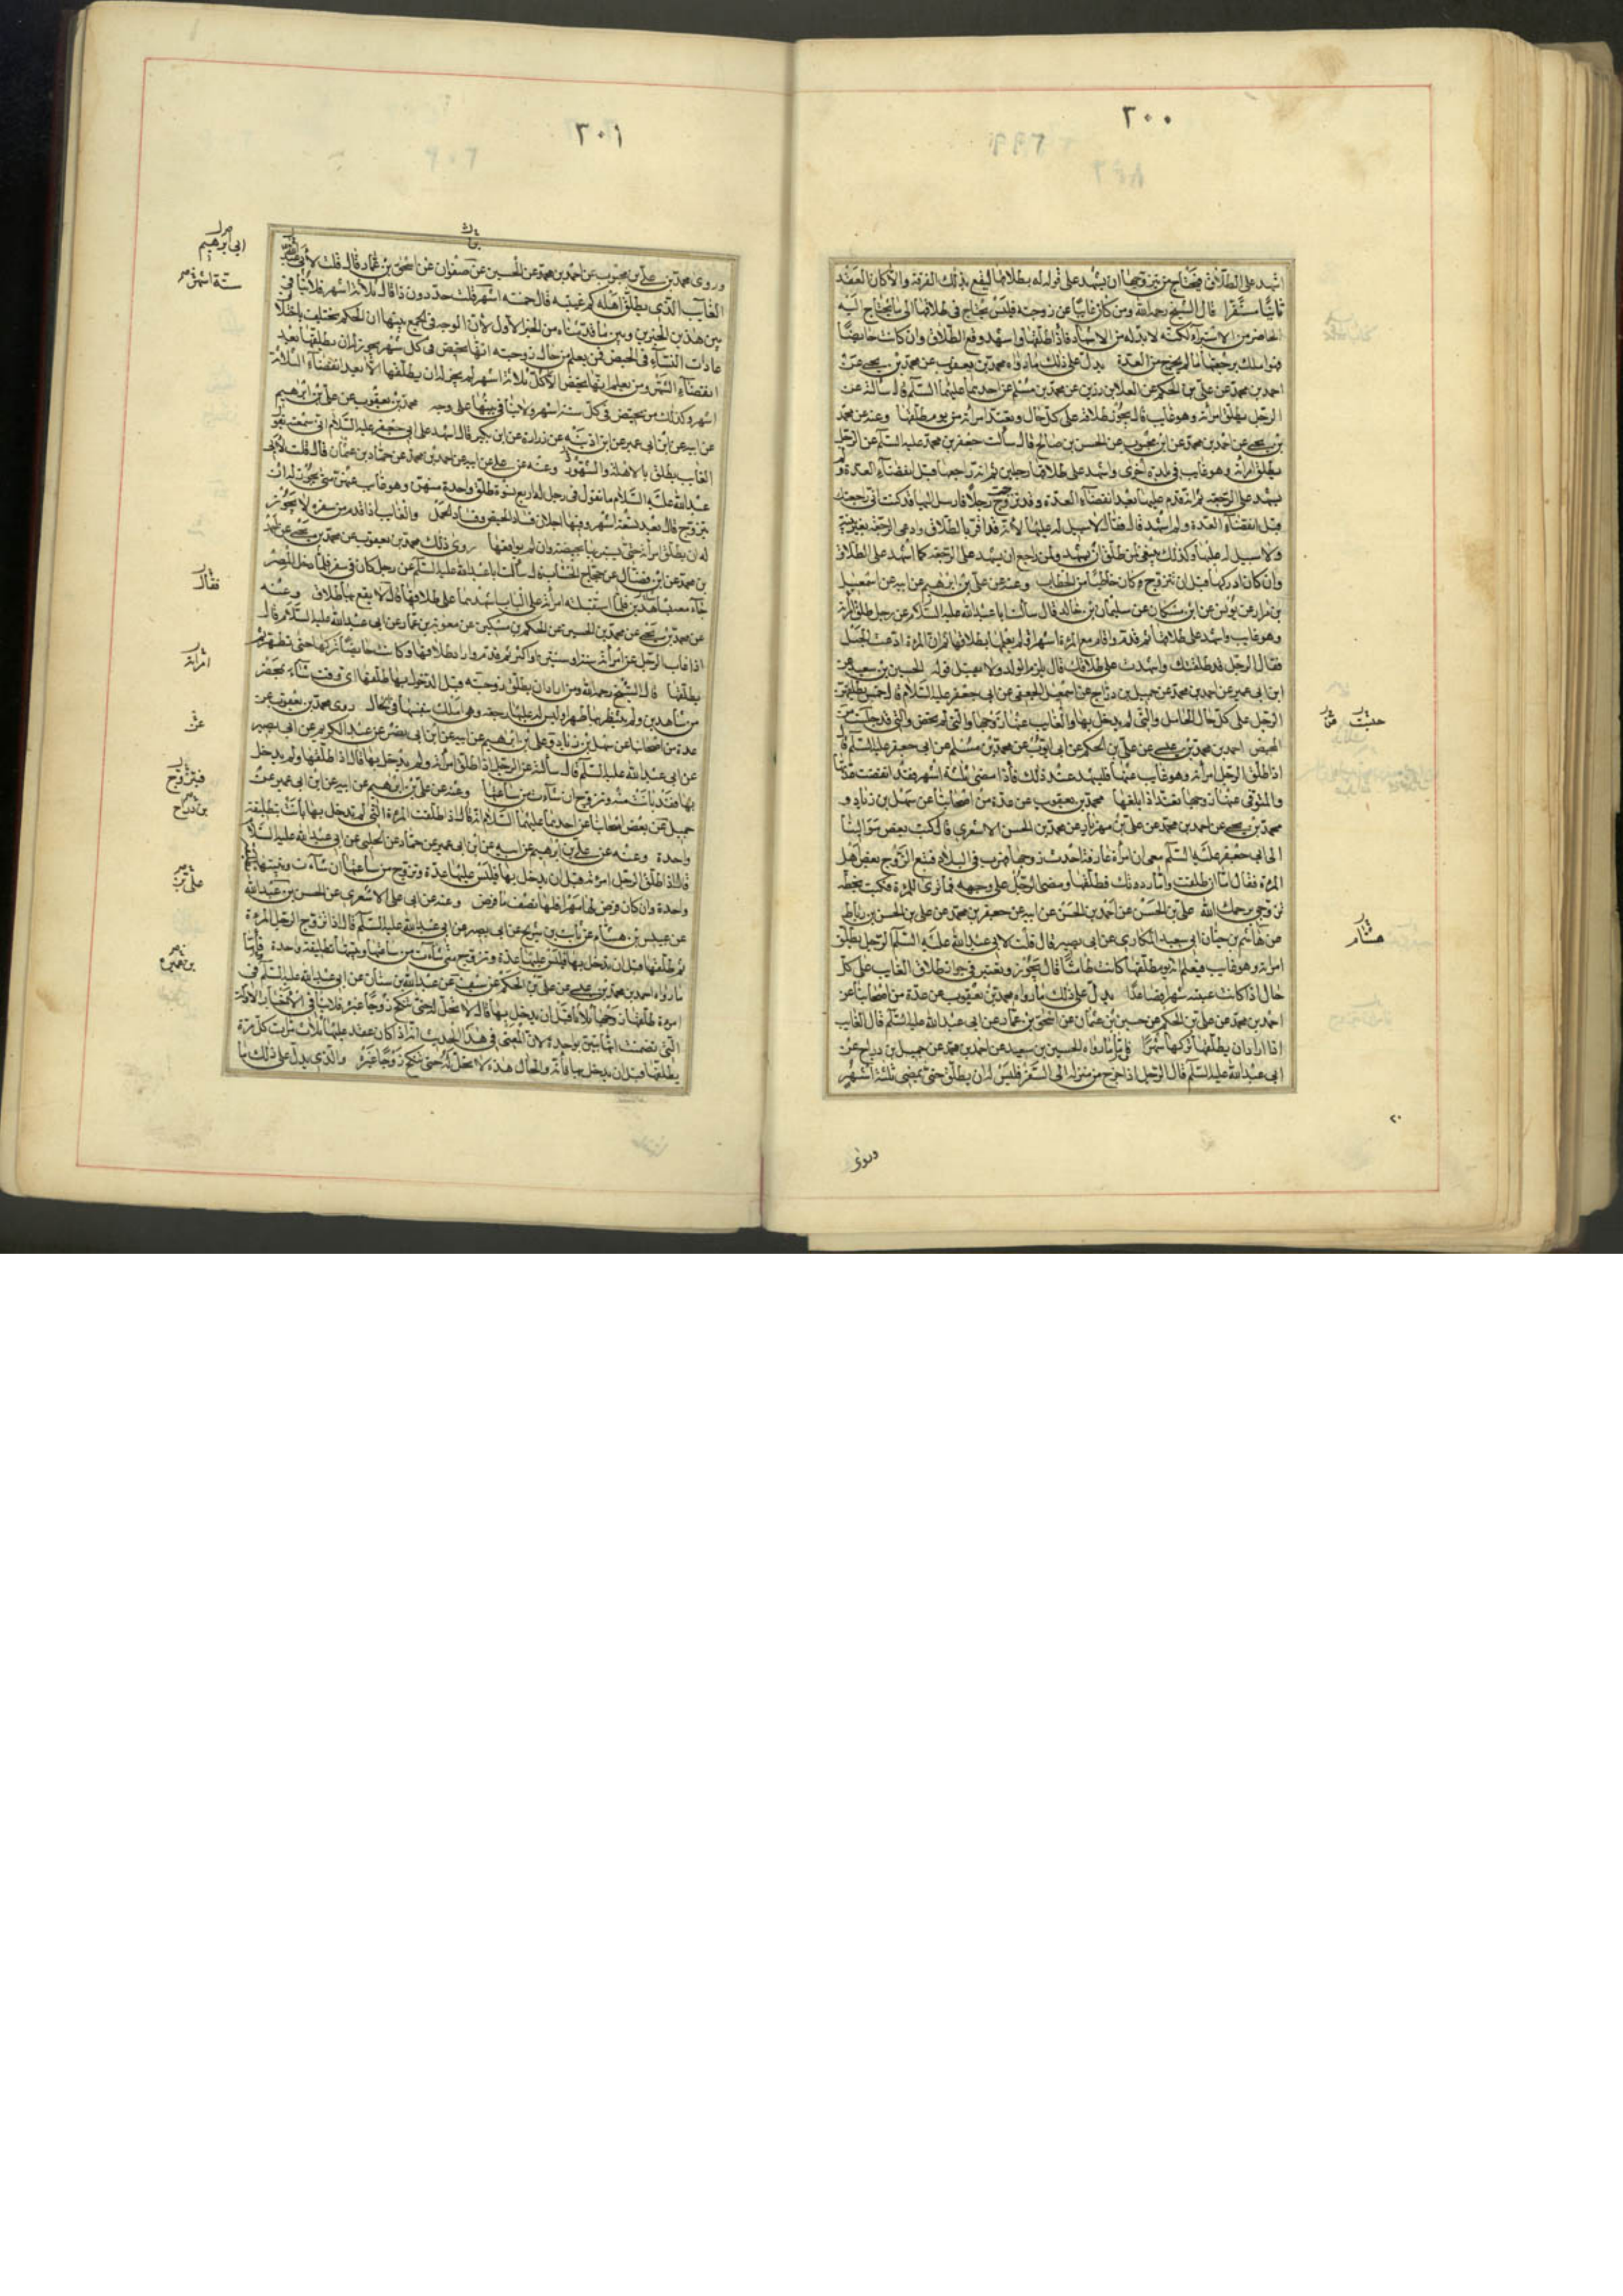 ٣٠٠
اشهد على الطلاق فيحتاج من يتزوجها ان يشهد على قوله له بطلاقها ليقع بذلك الفرقة والا كان العقد
ثابتًا مستقرا قال الشيخ رحمه الله ومن كان غايبًا عن زوجته فليس يحتاج في طلاقها الى ما يحتاج اليه
الحاضر من الاستبراء لكنه لا بد له من الاشهاد فاذا طلقها واشهد وقع الطلاق وان كانت حايضًا
فهو املك برجعتها ما لم يخرج من العدة يدل على ذلك ما رواه محمد بن يعقوب عن محمد بن يحيى عن
احمد بن محمد عن علي بن الحكم عن العلا بن رزين عن محمد بن مسلم عن احدهما عليهما السلم قال سالته عن
الرجل يطلق امراته وهو غايب قال يجوز طلاقه على كل حال وتعتد امراته من يوم طلقها وعنه عن محمد
بن يحيى عن احمد بن محمد عن ابن محبوب عن الحسن بن صالح قال سالت جعفر بن محمد عليه السلم عن الرجل
يطلق امراته وهو غايب في بلدة اخرى واشهد على طلاقها رجلين ثم انه راجعها قبل انقضاء العدة ولم
يشهد على الرجعة ثم انه قدم عليها بعد انقضاء العدة وقد تزوجت رجلا فارسل اليها قد كنت راجعتك
قبل انقضاء العدة ولم اشهد قال فقال لا سبيل له عليها لانه قد اقر بالطلاق وادعى الرجعة بغير بينة
ولا سبيل له عليها وكذلك ينبغي لمن طلق ان يشهد ولمن راجع ان يشهد على الرجعة كما اشهد على الطلاق
وان كان ادركها قبل ان تتزوج كان خاطبًا من الخطاب وعنه عن علي بن ابرهيم عن ابيه عن اسمعيل
بن مرار عن يونس عن ابن مسكان عن سليمان بن خالد قال سالت ابا عبد الله عليه السلم عن رجل طلق امراته
وهو غايب واشهد على طلاقها ثم قدم واقام مع المرءة اشهرا لم يعلمها بطلاقها ثم ان المرءة ادعت الحبل
فقال الرجل قد طلقتك واشهدت على طلاقك قال يلزم الولد ولا يقبل قوله الحسين بن سعيد عن
ابن ابي عمير عن احمد بن محمد عن جميل بن دراج عن اسمعيل الجعفي عن ابي جعفر عليه السلام قال خمس يطلقهن
الرجل على كل حال الحامل والتي لم يدخل بها والغايب عنها زوجها والتي لم تحض والتي قد جلست من
المحيض احمد بن محمد بن عيسى عن علي بن الحكم عن ابي ايوب عن محمد بن مسلم عن ابي جعفر عليه السلم قال
اذا طلق الرجل امراته وهو غايب عنها فليشهد عند ذلك فاذا مضى ثلثة اشهر فقد انقضت عدتها
والمتوفى عنها زوجها تعتد اذا بلغها محمد بن يعقوب عن عدة من اصحابنا عن سهل بن زياد و
محمد بن يحيى عن احمد بن محمد عن علي بن مهزيار عن محمد بن الحسن الاشعري قال كتب بعض موالينا
الى ابي جعفر عليه السلم معي ان امراة عارفة احدث زوجها فهرب في البلاد فتبع الزوج بعض اهل
المرءة فقال اما طلقت واما رددتك فطلقها ومضى الرجل على وجهه فما ترى للمرءة فكتب بخطه
تزوجي يرحمك الله علي بن الحسن عن احمد بن الحسن عن ابيه عن جعفر بن محمد عن علي بن الحسن بن رباط
عن هاشم بن حيان ابي سعيد المكاري عن ابي بصير قال قلت لابي عبد الله عليه السلم الرجل يطلق
امراته وهو غايب فيعلم انه يوم طلقها كانت طامثا قال يجوز ويعتبر في جواز طلاق الغايب على كل
حال اذا كانت غيبته شهرا فصاعدًا يدل على ذلك ما رواه محمد بن يعقوب عن عدة من اصحابنا عن
احمد بن محمد عن علي بن الحكم عن حسين بن عثمان عن اسحق بن عمار عن ابي عبد الله عليه السلم قال الغايب
اذا اراد ان يطلقها تركها شهرًا فاما ما رواه الحسين بن سعيد عن احمد بن محمد عن جميل بن دراج عن
ابي عبد الله عليه السلم قال الرجل اذا خرج من منزله الى السفر فليس له ان يطلق حتى تمضي ثلثة اشهر
هشام
٢٠
وروى
٣٠١
وروى محمد بن علي بن محبوب عن احمد بن محمد عن الحسين عن صفوان عن اسحق بن عمار قال قلت لابي
الغايب الذي يطلق اهله كم غيبته قال خمسة اشهر قلت حد دون ذا قال ثلاثة اشهر فلا تنافي
بين هذين الخبرين وبين ما قدمناه من الخبر الاول لان الوجه في الجمع بينها ان الحكم يختلف باختلاف
عادات النساء في الحيض فمن يعلم من حال زوجته انها تحيض في كل شهر يجوز له ان يطلقها بعد
انقضاء الشهر ومن يعلم انها لا تحيض الا كل ثلاثة اشهر لم يجز له ان يطلقها الا بعد انقضاء الثلاثة
اشهر وكذلك من تحيض في كل ستة اشهر ولا تنافي بينها على وجه محمد بن يعقوب عن علي بن ابرهيم
عن ابيه عن ابن ابي عمير عن ابن اذينه عن زرارة عن ابن بكير قال اشهد على ابي جعفر عليه السلام اني سمعته يقول
الغايب يطلق بالاهلة والشهور وعنه عن علي عن ابيه عن احمد بن محمد عن حماد بن عثمان قال قلت لابي
عبد الله عليه السلام ما تقول في رجل له اربع نسوة طلق واحدة منهن وهو غايب عنهن متى يجوز له ان
يتزوج قال بعد تسعة اشهر وفيها اجلان فساد الحيض وفساد الحمل والغايب اذا قدم من سفره لا يجوز
له ان يطلق امراته حتى يستبريها بحيضة وان لم يواقعها روى ذلك محمد بن يعقوب عن محمد بن يحيى عن احمد
بن محمد عن ابن فضال عن حجاج الخشاب قال سالت ابا عبد الله عليه السلم عن رجل كان في سفر فلما دخل المصر
جاء معه بشاهدين فلما استقبلته امراته على الباب اشهدهما على طلاقها قال لا يقع بها طلاق وعنه
عن محمد بن يحيى عن محمد بن الحسين عن الحكم بن مسكين عن معوية بن عمار عن ابي عبد الله عليه السلام قال
اذا غاب الرجل عن امراته سنة او سنتين او اكثر ثم قدم واراد طلاقها وكانت حايضًا تركها حتى تطهر ثم
يطلقها قال الشيخ رحمه الله ومن اراد ان يطلق زوجته قبل الدخول بها طلقها اي وقت شاء بمحضر
من شاهدين ولم ينتظر بها طهرا وليس له عليها رجعة وهي املك بنفسها في الحال روى محمد بن يعقوب عن
عدة من اصحابنا عن سهل بن زياد وعلي بن ابرهيم عن ابيه عن ابن ابي نصر عن عبد الكريم عن ابي بصير
عن ابي عبد الله عليه السلم قال سالته عن الرجل اذا طلق امراته ولم يدخل بها قال اذا طلقها ولم يدخل
بها فقد بانت منه وتزوج ان شاءت من ساعتها وعنه عن علي بن ابرهيم عن ابيه عن ابن ابي عمير عن
جميل عن بعض اصحابنا عن احدهما عليهما السلام انه قال اذا طلقت المرءة التي لم يدخل بها بانت بتطليقة
واحدة وعنه عن علي بن ابرهيم عن ابيه عن ابن ابي عمير عن حماد عن الحلبي عن ابي عبد الله عليه السلام
قال اذا طلق الرجل امراته قبل ان يدخل بها فليس عليها عدة وتزوج من ساعتها ان شاءت وتبينها تطليقة
واحدة وان كان فرض لها مهرا فلها نصف ما فرض وعنه عن ابي علي الاشعري عن الحسن بن عبد الله
عن عبيس بن هشام عن ثابت بن شريح عن ابي بصير عن ابي عبد الله عليه السلم قال اذا تزوج الرجل المرءة
ثم طلقها قبل ان يدخل بها فليس عليها عدة وتزوج متى شاءت من ساعتها وتبينها تطليقة واحدة فاما
ما رواه احمد بن محمد بن عيسى عن علي بن الحكم عن سيف عن عبد الله بن سنان عن ابي عبد الله عليه السلم في
امرءة طلقها زوجها ثلاثا قبل ان يدخل بها قال لا تحل له حتى تنكح زوجًا غيره فلا ينافي الاخبار الاولة
التي تضمنت انها تبين بواحدة لان المعنى في هذا الحديث انه اذا كان عقد عليها ثلاث مرات كل مرة
يطلقها قبل ان يدخل بها فانه والحال هذه لا تحل له حتى تنكح زوجًا غيره والذي يدل على ذلك ما
ابي ابرهيم
ستة اشهر
فقال
امراته
عن
فيتزوج
بن دراج
علي بن